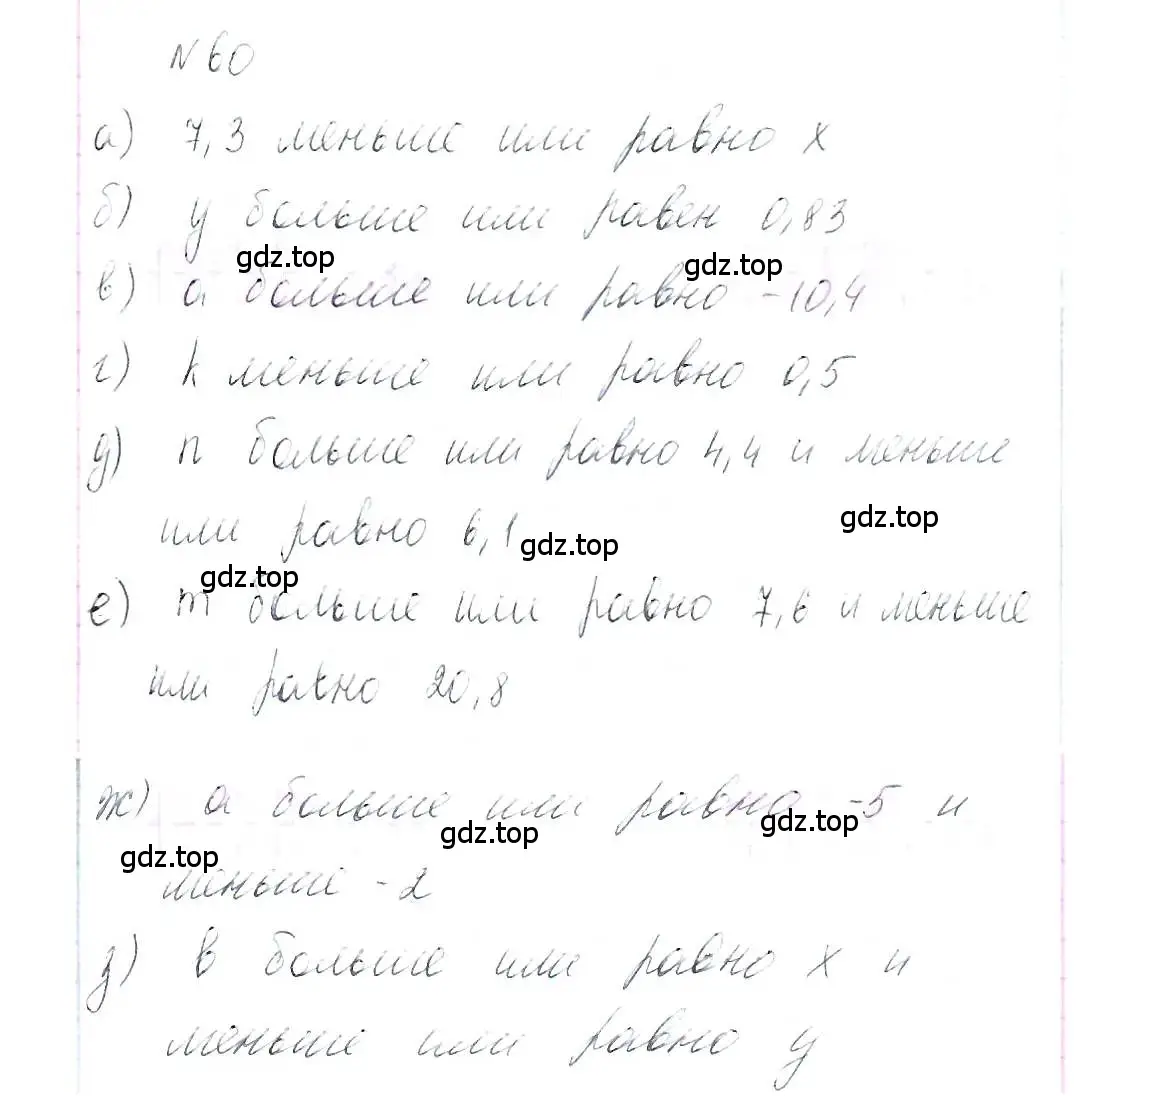 N 60
а) 7,3 меньше или равно x
б) y больше или равен 0,83
gdz.top
gdz.top
в) a больше или равно -10,4
г) k меньше или равно 0,5
д) n больше или равно 4,4 и меньше
gdz.top
или равно 6,1
gdz.top
gdz.top
е) m больше или равно 7,6 и меньше
или равно 20,8
ж) a больше или равно -5 и
gdz.top
gdz.top
gdz.top
меньше -2
з) в больше или равно x и
меньше или равно y